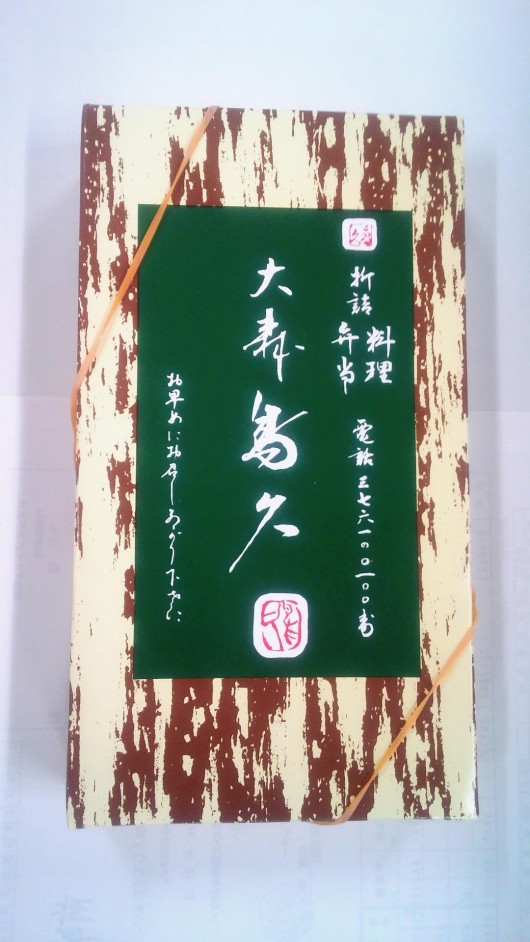 折詰 料理
弁当
電話 三七六一の〇一〇〇番
大寿
久
お早めにお召しあがり下さい